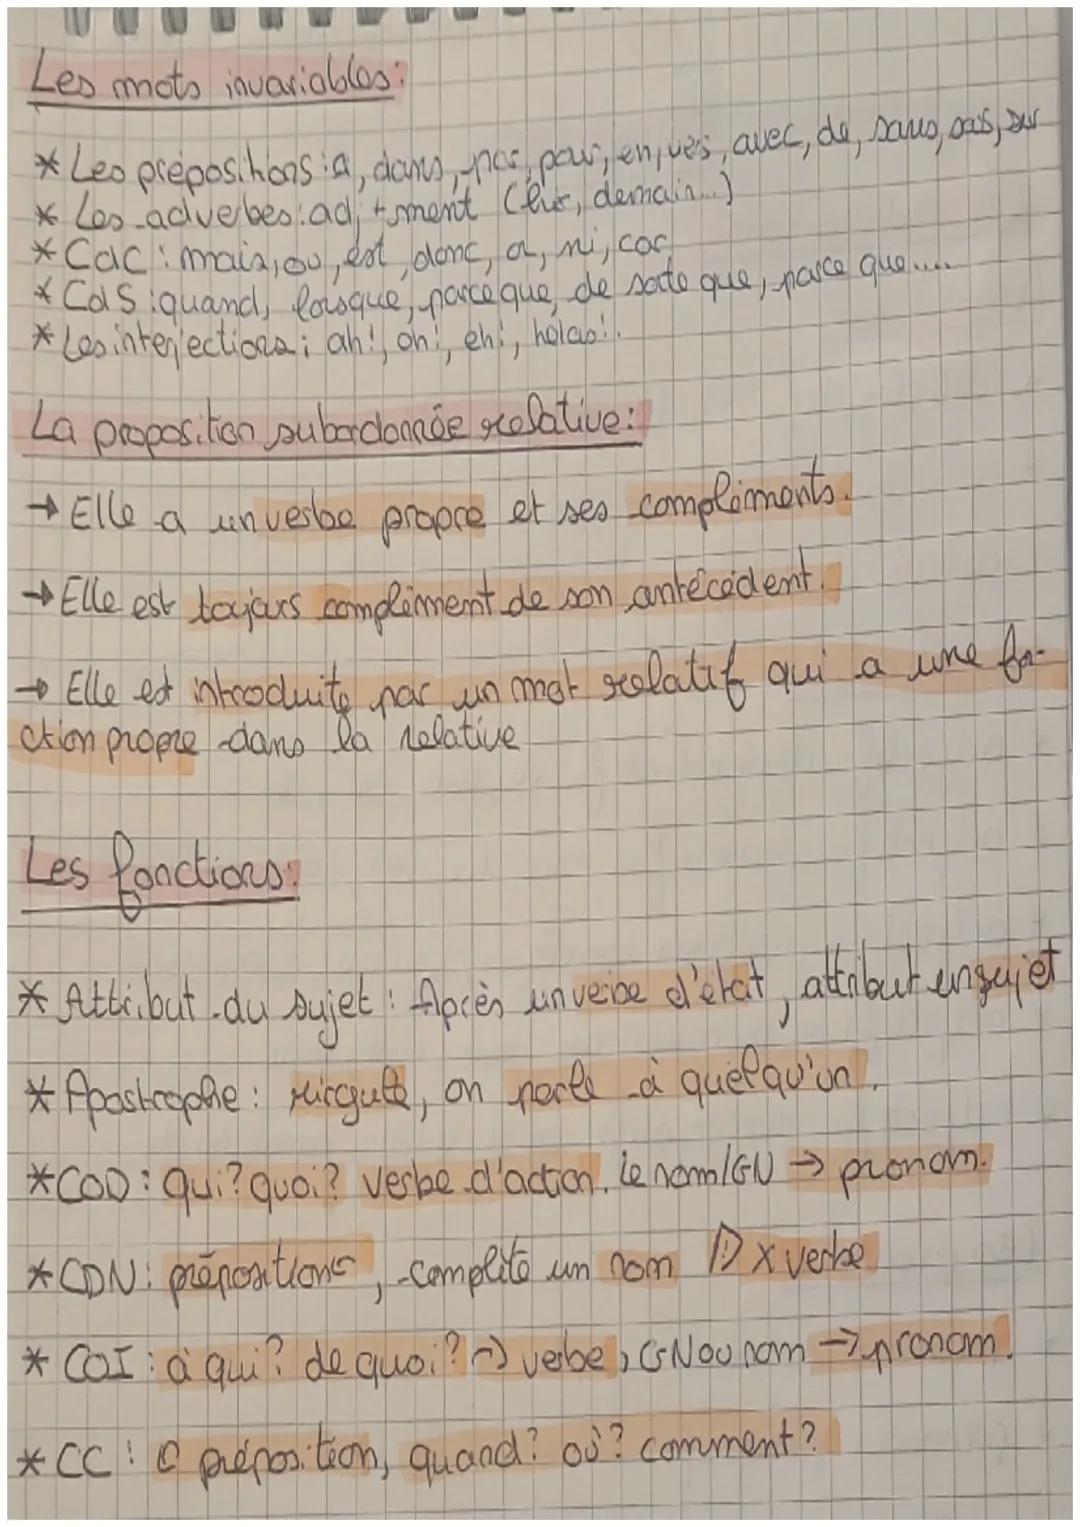 Les mots invariables:
* Les prépositions : à, dans, par, pour, en, vers, avec, de, sans, sous, sur
* Les adverbes : adj + ment (hier, demain...)
* CdC : mais, ou, est, donc, or, ni, car
* CdS : quand, lorsque, parce que, de sorte que, parce que....
* Les interjections : ah!, oh!, eh!, helas!.
La proposition subordonnée relative:
→ Elle a un verbe propre et ses compléments.
→ Elle est toujours complément de son antécédent.
→ Elle est introduite par un mot relatif qui a une fon-
ction propre dans la relative
Les fonctions:
* Attribut du sujet : Après un verbe d'état, attribut un sujet
* Apostrophe : virgule, on parle à quelqu'un.
* COD : Qui? quoi? verbe d'action. Le nom/GN → pronom.
* CDN : prépositions, complète un nom ! x verbe
* COI : à qui? de quoi? → verbe, GN ou nom → pronom.
* CC : préposition, quand? où? comment?